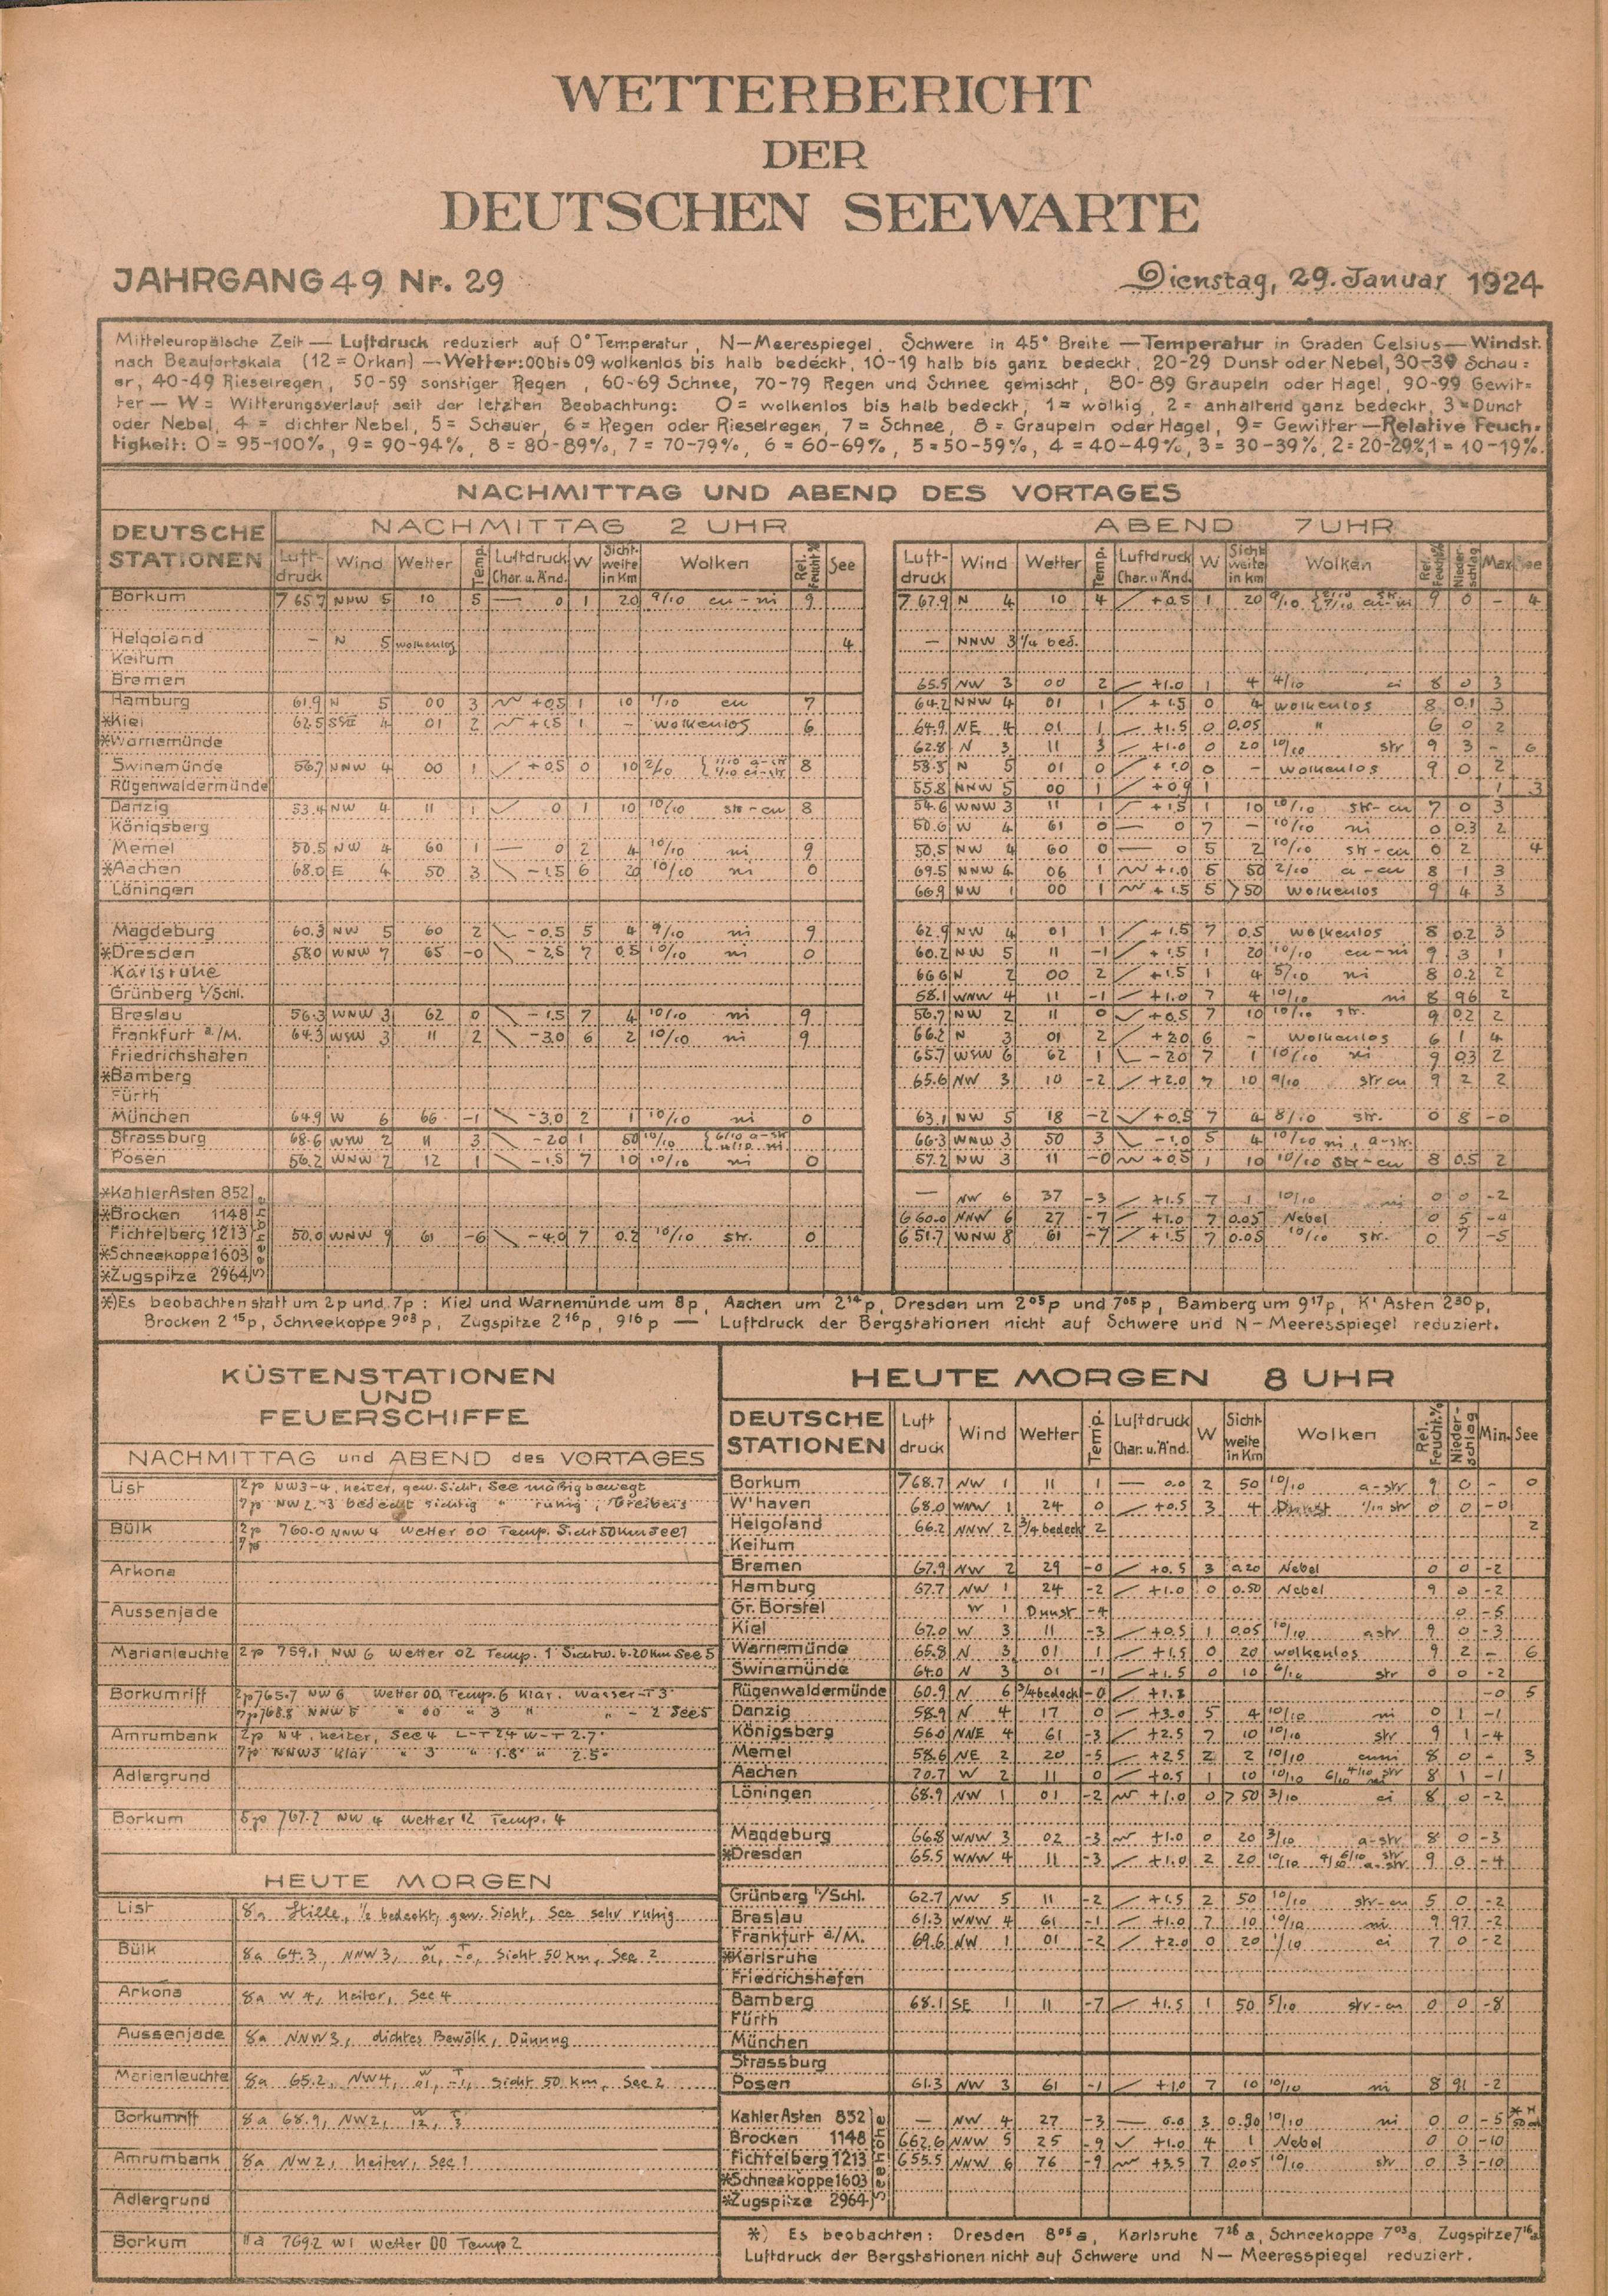 WETTERBERICHT
DER
DEUTSCHEN SEEWARTE
JAHRGANG 49 Nr. 29
Dienstag, 29. Januar 1924
Mitteleuropäische Zeit — Luftdruck reduziert auf 0° Temperatur, N—Meerespiegel, Schwere in 45° Breite — Temperatur in Graden Celsius — Windst.
nach Beaufortskala (12 = Orkan) — Wetter: 00 bis 09 wolkenlos bis halb bedeckt, 10-19 halb bis ganz bedeckt, 20-29 Dunst oder Nebel, 30-39 Schau=
er, 40-49 Rieselregen, 50-59 sonstiger Regen, 60-69 Schnee, 70-79 Regen und Schnee gemischt, 80-89 Graupeln oder Hagel, 90-99 Gewit=
ter — W = Witterungsverlauf seit der letzten Beobachtung: 0 = wolkenlos bis halb bedeckt, 1 = wolkig, 2 = anhaltend ganz bedeckt, 3 = Dunst
oder Nebel, 4 = dichter Nebel, 5 = Schauer, 6 = Regen oder Rieselregen, 7 = Schnee, 8 = Graupeln oder Hagel, 9 = Gewitter — Relative Feuch-
tigkeit: 0 = 95-100%, 9 = 90-94%, 8 = 80-89%, 7 = 70-79%, 6 = 60-69%, 5 = 50-59%, 4 = 40-49%, 3 = 30-39%, 2 = 20-29%, 1 = 10-19%.
NACHMITTAG UND ABEND DES VORTAGES
DEUTSCHE STATIONEN
NACHMITTAG 2 UHR
ABEND 7 UHR
Luft-druck Wind Wetter Temp. Luftdruck Char. u. Änd. W Sicht-weite in Km Wolken Rel. Feucht.% See
Luft-druck Wind Wetter Temp. Luftdruck Char. u. Änd. W Sicht weite in Km Wolken Rel. Feucht.% Nieder-schlag Max. See
Borkum 765.7 NNW 5 10 5 — 0 1 20 9/10 cu-ni 9 767.9 N 4 10 4 +0.5 1 20 9 0 - 4
Helgoland — N 5 wolkenlos 4 — NNW 3 1/4 bed.
Keitum
Bremen 65.5 NW 3 00 2 +1.0 1 4 4/10 ci 8 0 3
Hamburg 61.9 N 5 00 3 +0.5 1 10 1/10 cu 7 64.2 NNW 4 01 1 +1.5 0 4 wolkenlos 8 0.1 3
*Kiel 62.5 4 01 2 +1.5 1 - wolkenlos 6 64.9 NE 4 01 1 +1.5 0 0.05 " 6 0 2
*Warnemünde 62.8 N 3 11 3 +1.0 0 20 10/10 str 9 3 - 6
Swinemünde 56.7 NNW 4 00 1 +0.5 0 10 2/10 1/10 a-str 1/10 ci-str 8 N 5 01 0 0 - wolkenlos 9 0 2
Rügenwaldermünde 55.8 NNW 5 00 1 +0.9 1 1 3
Danzig 53.4 NW 4 11 1 0 1 10 10/10 str-cu 8 54.6 WNW 3 11 1 +1.5 1 10 10/10 str-cu 7 0 3
Königsberg 50.6 W 4 61 0 — 0 7 - 10/10 ni 0 0.3 2
Memel 50.5 NW 4 60 1 — 0 2 4 10/10 ni 9 50.5 NW 4 60 0 — 0 5 2 10/10 str-cu 0 2 4
*Aachen 68.0 E 4 50 3 -1.5 6 20 10/10 ni 0 69.5 NNW 4 06 1 +1.0 5 50 2/10 a-cu 8 1 3
Löningen 66.9 NW 1 00 1 +1.5 5 >50 wolkenlos 9 4 3
Magdeburg 60.3 NW 5 60 2 -0.5 5 4 9/10 ni 9 62.9 NW 4 01 1 +1.5 7 0.5 wolkenlos 8 0.2 3
*Dresden 58.0 WNW 7 65 -0 -2.5 7 0.5 10/10 ni 0 60.2 NW 5 11 -1 +1.5 1 20 10/10 cu-ni 9 3 1
Karlsruhe 66.6 N 2 00 2 +1.5 1 4 5/10 ni 8 0.2 2
Grünberg i/Schl. 58.1 WNW 4 11 -1 +1.0 7 4 10/10 ni 8 96 2
Breslau 56.3 WNW 3 62 0 -1.5 7 4 10/10 ni 9 56.7 NW 2 11 0 +0.5 7 10 10/10 str. 9 0.2 2
Frankfurt a/M. 64.3 WSW 3 11 2 -3.0 6 2 10/10 ni 9 66.2 N 3 01 2 +2.0 6 - wolkenlos 6 1 4
Friedrichshafen 65.7 WSW 6 62 1 -2.0 7 1 10/10 ni 9 0.3 2
*Bamberg 65.6 NW 3 10 -2 +2.0 7 10 9/10 str cu 9 2 2
Fürth
München 64.9 W 6 66 -1 -3.0 2 1 10/10 ni 0 63.1 NW 5 18 -2 +0.5 7 4 8/10 str. 0 8 -0
Strassburg 68.6 WSW 2 11 3 -2.0 1 50 10/10 6/10 a-str ni 66.3 WNW 3 50 3 -1.0 5 4 10/10 ni, a-str.
Posen 56.2 WNW 7 12 1 -1.5 7 10 10/10 ni 0 57.2 NW 3 11 -0 +0.5 1 10 10/10 str-cu 8 0.5 2
Seehöhe
*Kahler Asten 852 — NW 6 37 -3 +1.5 7 1 10/10 ni 0 0 -2
*Brocken 1148 660.0 NNW 6 27 -7 +1.0 7 0.05 Nebel 0 5 -4
Fichtelberg 1213 50.0 WNW 9 61 -6 -4.0 7 0.2 10/10 str. 0 651.7 WNW 8 61 -7 +1.5 7 0.05 10/10 str. 0 7 -5
*Schneekoppe 1603
*Zugspitze 2964
*) Es beobachten statt um 2p und 7p: Kiel und Warnemünde um 8p, Aachen um 2 14 p, Dresden um 2 05 p und 7 05 p, Bamberg um 9 17 p, K' Asten 2 30 p,
Brocken 2 15 p, Schneekoppe 9 03 p, Zugspitze 2 16 p, 9 16 p — Luftdruck der Bergstationen nicht auf Schwere und N-Meeresspiegel reduziert.
KÜSTENSTATIONEN
UND
FEUERSCHIFFE
NACHMITTAG und ABEND des VORTAGES
List 2p NW 3-4, heiter, gew. Sicht, See mäßig bewegt
7p NW 2-3 bedeckt sichtig " ruhig, Treibeis
Bülk 2p 760.0 NNW 4 Wetter 00 Temp. Sicht 50 Km See 1
7p
Arkona
Aussenjade
Marienleuchte 2p 759.1 NW 6 Wetter 02 Temp. 1 Sichtw. b. 20 Km See 5
Borkumriff 2p 765.7 NW 6 Wetter 00 Temp. 6 klar. Wasser-T 3°
7p 768.8 NNW 5 " 00 " 3 " " - 2 See 5
Amrumbank 2p N 4, heiter, See 4 L-T 2.4 W-T 2.7°
7p NNW 3 klar " 3 " 1.8° " 2.5°
Adlergrund
Borkum 5p 767.2 NW 4 Wetter 12 Temp. 4
HEUTE MORGEN
List 8a Stille, 1/2 bedeckt, gew. Sicht, See sehr ruhig
Bülk 8a 64.3, NNW 3, W 01, T -0, Sicht 50 km, See 2
Arkona 8a W 4, heiter, See 4
Aussenjade 8a NNW 3, dichtes Bewölk, Dünung
Marienleuchte 8a 65.2, NW 4, W 01, T -1, Sicht 50 km, See 2
Borkumriff 8a 68.9, NW 2, W 12, T 3
Amrumbank 8a NW 2, heiter, See 1
Adlergrund
Borkum 769.2 W 1 Wetter 00 Temp 2
HEUTE MORGEN 8 UHR
DEUTSCHE STATIONEN Luft druck Wind Wetter Temp. Luftdruck Char. u. Änd. W Sicht-weite in Km Wolken Rel. Feucht.% Nieder-schlag Min. See
Borkum 768.7 NW 1 11 1 — 0.0 2 50 10/10 a-str 9 0 - 0
W'haven 68.0 WNW 1 24 0 +0.5 3 4 Dunst 1/10 str 0 0 -0
Helgoland 66.2 NNW 2 3/4 bedeckt 2 2
Keitum
Bremen 67.9 NW 2 29 -0 +0.5 3 0.20 Nebel 0 0 -2
Hamburg 67.7 NW 1 24 -2 +1.0 0 0.50 Nebel 9 0 -2
Gr. Borstel W 1 Dunst -4 0 -5
Kiel 67.0 W 3 11 -3 +0.5 1 0.05 10/10 a str 9 0 -3
Warnemünde 65.8 N 3 01 1 +1.5 0 20 wolkenlos 9 2 - 6
Swinemünde 64.0 N 3 01 -1 +1.5 0 10 6/10 str 0 0 -2
Rügenwaldermünde 60.9 N 6 3/4 bedeckt -0 -0 5
Danzig 58.9 N 4 17 0 +3.0 5 4 10/10 ni 0 1 -1
Königsberg 56.0 NNE 4 61 -3 +2.5 7 10 10/10 str 9 1 -4
Memel 58.6 NE 2 20 -5 +2.5 2 2 10/10 cuni 8 0 - 3
Aachen 70.7 W 2 11 0 +0.5 1 10 10/10 4/10 str 6/10 8 1 -1
Löningen 68.9 NW 1 01 -2 +1.0 0 >50 3/10 ci 8 0 -2
Magdeburg 66.8 WNW 3 02 -3 +1.0 0 20 3/10 a-str 8 0 -3
*Dresden 65.5 WNW 4 11 -3 +1.0 2 20 10/10 str a-str 9 0 -4
Grünberg i/Schl. 62.7 NW 5 11 -2 +1.5 2 50 10/10 str-cu 5 0 -2
Breslau 61.3 WNW 4 61 -1 +1.0 7 10 10/10 ni 9 97 -2
Frankfurt a/M. 69.6 NW 1 01 -2 +2.0 0 20 1/10 ci 7 0 -2
*Karlsruhe
Friedrichshafen
Bamberg 68.1 SE 1 11 -7 +1.5 1 50 5/10 str-cu 0 0 -8
Fürth
München
Strassburg
Posen 61.3 NW 3 61 -1 +1.0 7 10 10/10 ni 8 91 -2
Seehöhe
Kahler Asten 852 — NW 4 27 -3 — 0.0 3 0.90 10/10 ni 0 0 -5
Brocken 1148 662.6 NNW 5 25 -9 +1.0 4 1 Nebel 0 0 -10
Fichtelberg 1213 653.5 NNW 6 76 -9 +3.5 7 0.05 10/10 str 0 3 -10
*Schneekoppe 1603
*Zugspitze 2964
*) Es beobachten: Dresden 8 05 a, Karlsruhe 7 26 a, Schneekoppe 7 03 a, Zugspitze 7 16 a
Luftdruck der Bergstationen nicht auf Schwere und N—Meeresspiegel reduziert.